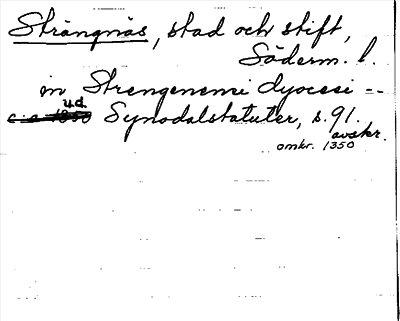 Strängnäs, stad och stift,
Söderm. l.
in Strengenensi dyocesi --
u.d.
c:a 1350 Synodalstatuter, s. 91.
avskr.
omkr. 1350